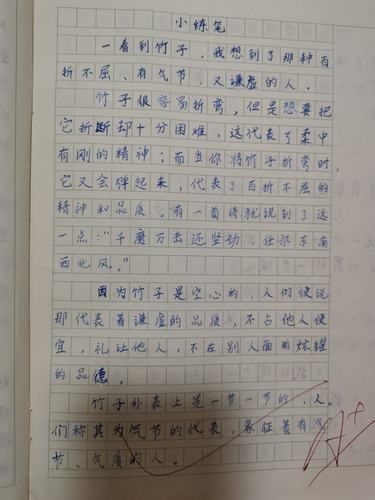 小练笔
一看到竹子，我想到了那种百
折不屈、有气节、又谦虚的人。
竹子很容易折弯，但是想要把
它折断却十分困难，这代表了柔中
有刚的精神；而当你将竹子折弯时，
它又会弹起来，代表了百折不屈的
精神和品质。有一首诗就说到了这
一点：“千磨万击还坚劲，任尔东南
西北风。”
因为竹子是空心的，人们便说
那代表着谦虚的品质，不占他人便
宜，礼让他人，不在别人面前炫耀
的品德。
竹子外表上是一节一节的，人
们称其为气节的代表，象征着有气
节、气质的人。